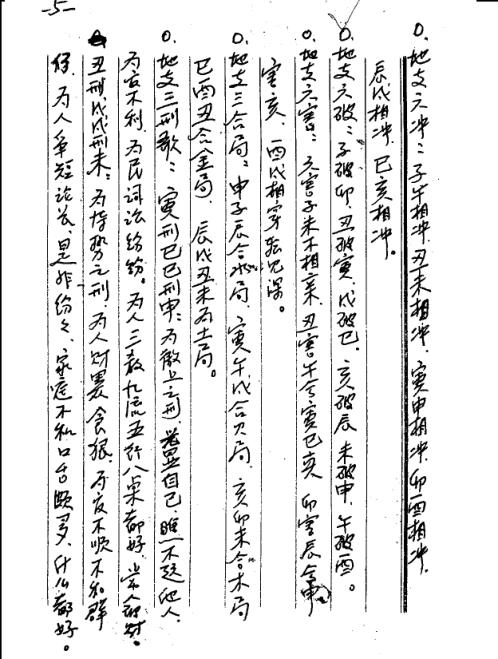 -5-
0. 地支六冲：子午相冲. 丑未相冲. 寅申相冲. 卯酉相冲.
辰戌相冲. 巳亥相冲。
0. 地支六破：子破卯. 丑破寅. 戌破巳. 亥破辰 未破申. 午破酉。
0. 地支六害：六害子未不相亲. 丑害午兮寅巳 卯害辰兮申
害亥. 酉戌相穿深。
0. 地支三合局：申子辰合水局. 寅午戌合火局. 亥卯未合木局
巳酉丑合金局. 辰戌丑未为土局。
0. 地支三刑歌：寅刑巳巳刑申：为之刑. 自己. 瞧不起他人.
为官不利. 为民词讼纷纷。为人三教九流五行八都好.
丑刑戌戌刑未：为恃势之刑. 为人财黑贪狠. 为官不顺不和群
众. 为人争短论长. 是非纷々. 家庭不和口舌颇多. 什么都好。